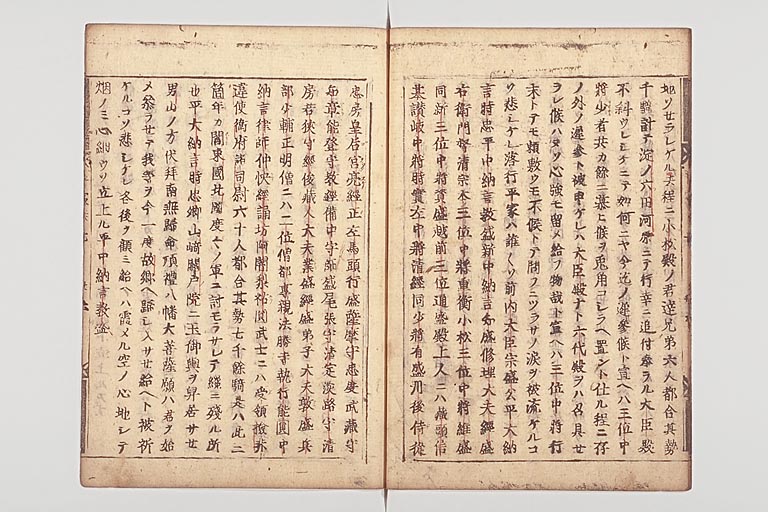 地ソセラレケル去程ニ小松殿ノ君達兄弟六人都合其勢
千騎計テ淀ノ六田河原ニテ行幸ニ追付奉ラル大臣殿
不斜ウレシケニテ如何ニヤ今迄ノ遅参候ト宣ヘハ三位中
将少者共カ餘ニ慕ヒ候ヲ兎角コシラヘ置ント仕ル程ニ存
ノ外ノ遅参ト被申ケレハ大臣殿ナトヤ六代殿ヲハ召具セ
ラレ候ハヌソ心強モ留メ給フ物哉ト宣ヘハ三位中将行
末トテモ頼敷ウモ不候トテ問フニツラサノ涙ヲ被流ケルコ
ソ悲シケレ落行平家ハ誰々ソ前内大臣宗盛公平大納
言時忠平中納言教盛新中納言知盛修理大夫經盛
右衛門督清宗本三位中将重衡小松三位中将維盛
同新三位中将資盛越前三位通盛殿上人ニハ蔵頭信
基讃岐中将時實左中将清經同少将有盛丹後侍従
忠房皇后宮亮經正左馬頭行盛薩摩守忠度武蔵守
知章能登守教經備中守師盛尾張守清定淡路守清
房若狭守經俊蔵人大夫業盛經盛弟子大夫敦盛兵
部少輔正明僧ニハ二位僧都専親法勝寺執行能圓中
納言律師仲快經誦坊阿闍梨祐圓武士ニハ受領撿非
違使衛府諸司尉六十人都合其勢七千餘騎是ハ此二
箇年カ間東國北國度々ノ軍ニ討モラサレテ纔ニ残ル所
也平大納言時忠卿山﨑関戸院ニ玉御輿ヲ舁居サセ
男山ノ方伏拝南無歸命頂禮八幡大菩薩願ハ君ヲ始
メ参ラサテ我等ヲ今一度故郷ヘ歸シ入サセ給ヘト被祈
ケルコソ悲シケレ各後ヲ顧ミ給ヘハ霞メル空ノ心地シテ
烟ノミ心細ウソ立上ル平中納言教盛